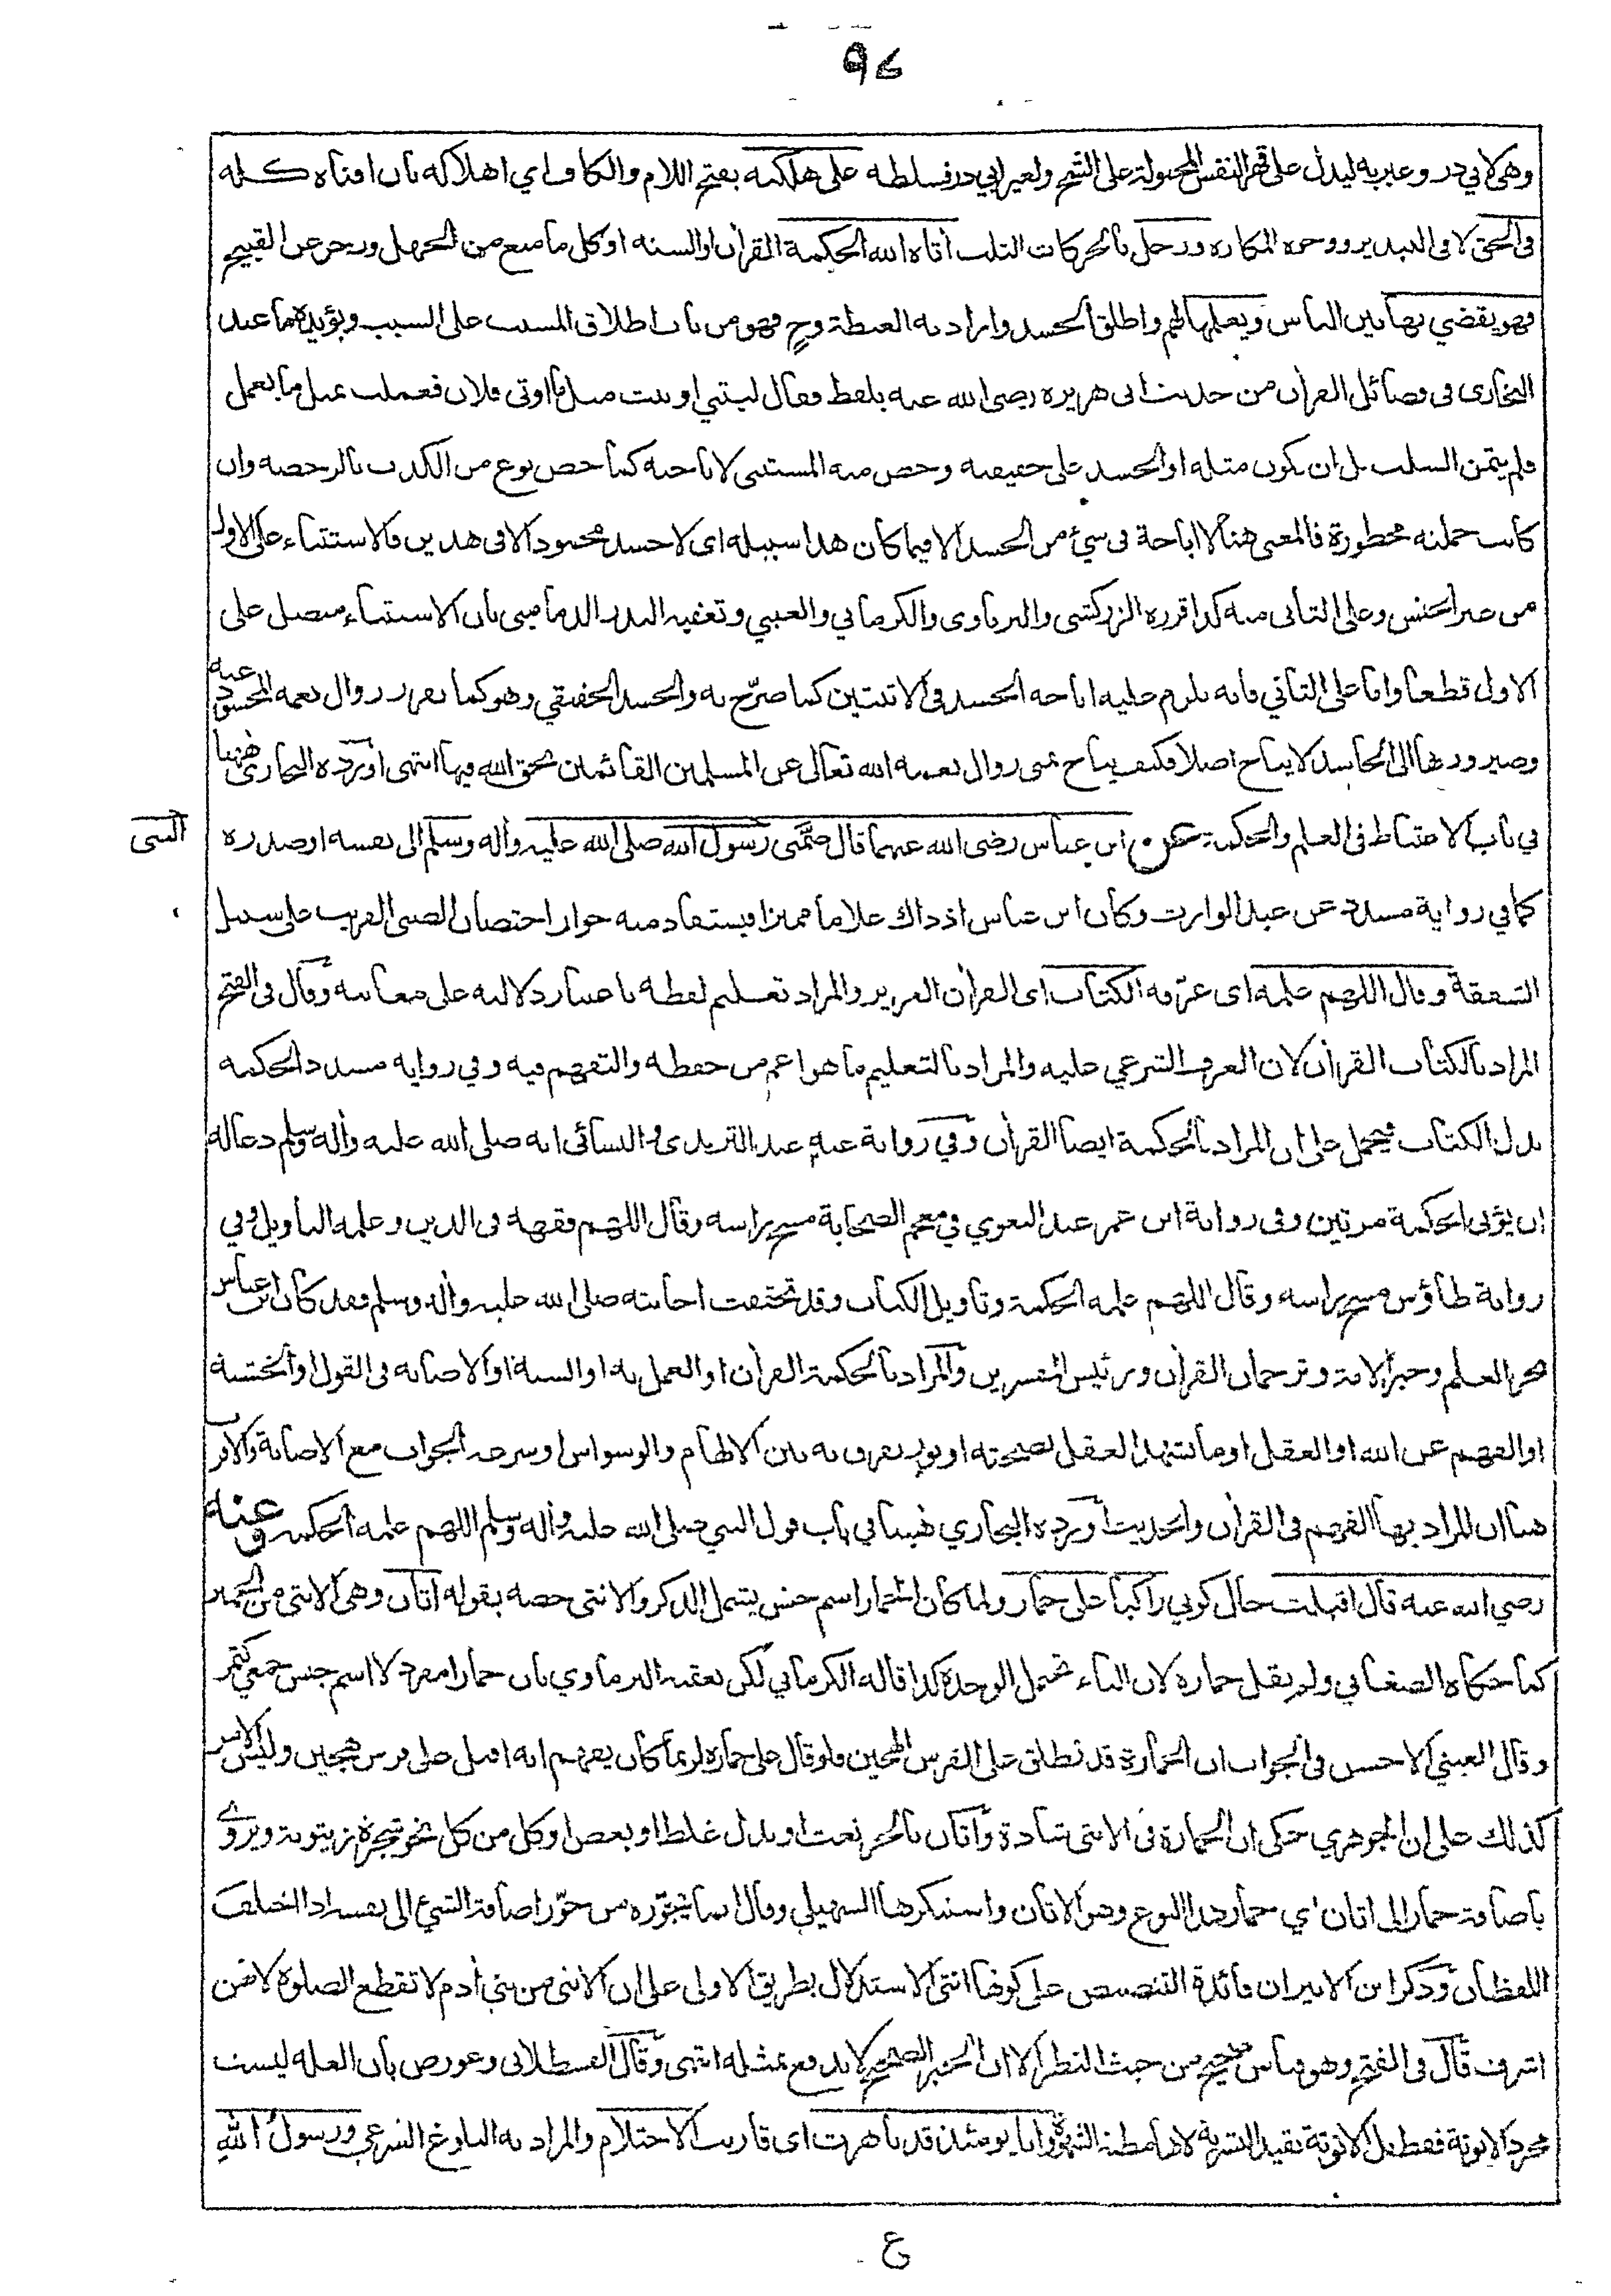 ٩٤
وهي لابي ذر وعبر به ليدل على قهر النفس المجبولة على الشح ولغير ابي ذر فسلطه على هلكته بفتح اللام والكاف اي اهلاكه بان افناه كله
في الحق لا في التبذير ووجوه المكاره ورجل بالحركات الثلث أتاه الله الحكمة القرأن او السنه او كل ما منع من الجهل وزجر عن القبيح
فهو يقضي بها بين الناس ويعلمها لهم واطلق الحسد واراد به الغبطة وح فهو من باب اطلاق المسبب على السبب ويؤيده ما عند
البخاري في فضائل القرأن من حديث ابي هريرة رضي الله عنه بلفظ فقال ليتني اوتيت مثل ما اوتي فلان فعملت بمثل ما يعمل
فلم يتمن السلب بل ان يكون مثله او الحسد على حقيقته وخص منه المستثنى لاباحته كما خص نوع من الكذب بالرخصه وان
كانت جملته محظورة فالمعنى هنا لا اباحة في شيء من الحسد الا فيما كان هذا سبيله اي لا حسد محمود الا في هذين فالاستثناء على الاول
من غير الجنس وعلى الثاني منه كذا قرره الزركشي والبرماوي والكرماني والعيني وتعقبه البدر الدماميني بان الاستثناء متصل على
الاول قطعا واما على الثاني فانه يلزم عليه اباحه الحسد في الاثنتين كما صرّح به والحسد الحقيقي وهو كما تقرر زوال نعمه المحسود عنه
وصيرورتها الى الحاسد لا يباح اصلا فكيف يباح تمني زوال نعمه الله تعالى عن المسلمين القائمين بحق الله فيها انتهى اورده البخاري ههنا
في باب الاغتباط في العلم والحكمة عن ابن عباس رضي الله عنهما قال ضمّني رسول الله صلى الله عليه وأله وسلم الى نفسه او صدره
النبي
كما في رواية مسدد عن عبد الوارث وكان ابن عباس اذ ذاك غلاما مميزا فيستفاد منه جواز احتضان الصبي القريب على سبيل
الشفقة وقال اللهم علمه اي عرّفه الكتاب اي القرأن العزيز والمراد تعليم لفظه باعتبار دلالته على معانيه وقال في الفتح
المراد بالكتاب القرأن لان العرف الشرعي عليه والمراد بالتعليم ما هو اعم من حفظه والتفهم فيه وفي روايه مسدد الحكمه
بدل الكتاب فيحمل على ان المراد بالحكمة ايضا القرأن وفي رواية عنه عند الترمذي والنسائي انه صلى الله عليه وأله وسلم دعا له
ان يؤتى الحكمة مرتين وفي رواية ابن عمر عند البغوي في معجم الصحابة مسح براسه وقال اللهم فقهه في الدين وعلمه التاويل وفي
رواية طاؤس مسح براسه وقال اللهم علمه الحكمة وتاويل الكتاب وقد تحققت اجابته صلى الله عليه وأله وسلم فقد كان ابن عباس
بحر العلم وحبر الامة وترجمان القرأن ورئيس المفسرين والمراد بالحكمة القرأن او العمل به او السنة او الاصابه في القول او الخشية
او الفهم عن الله او العقل او ما يشهد العقل لصحته او نور يفرق به بين الالهام والوسواس او سرعه الجواب مع الاصابة والاقرب
هنا ان المراد بها الفهم في القرأن والحديث اورده البخاري ههنا في باب قول النبي صلى الله عليه وأله وسلم اللهم علمه الحكمه وعنه
رضي الله عنه قال اقبلت حال كوني راكبا على حمار ولما كان الحمار اسم جنس يشمل الذكر والانثى خصه بقوله أتان وهي الانثى من الحمير
كما حكاه الصغاني ولم يقل حماره لان التاء تحتمل الوحدة كذا قاله الكرماني لكن تعقبه البرماوي بان حمارا مفرد لا اسم جنس جمعي كتمر
وقال العيني الاحسن في الجواب ان الحمارة قد تطلق على الفرس الهجين فلو قال على حماره لربما كان يفهم انه اقبل على فرس هجين وليس الامر
كذلك على ان الجوهري حكى ان الحمارة في الانثى شاذة وأتان بالجر نعت او بدل غلط او بعض او كل من كل نحو شجرة زيتونة ويروى
باضافة حمار الى اتان اي حمار هذا النوع وهو الاتان واستنكرها السهيلي وقال انما يجوّزه من جوّز اضافة الشيء الى نفسه اذا اختلف
اللفظان وذكر ابن الاثير ان فائدة التنصيص على كونها انثى الاستدلال بطريق الاولى على ان الانثى من بني أدم لا تقطع الصلوة لانهن
اشرف قال في الفتح وهو قياس صحيح من حيث النظر الا ان الخبر الصحيح لا يدفع بمثله انتهى وقال القسطلاني وعورض بان العله ليست
مجرد الانوثة فقط بل الانوثة بقيد البشرية لانها مظنة الشهوة وانا يومئذ قد ناهزت اي قاربت الاحتلام والمراد به البلوغ الشرعي ورسول الله
ع